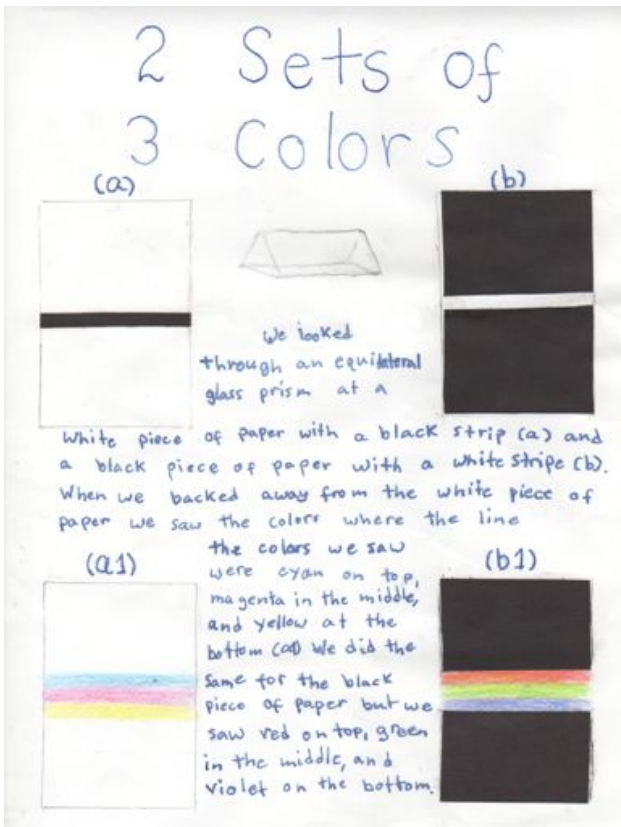 2 Sets of
3 Colors
(a)
(b)
We looked
through an equilateral
glass prism at a
white piece of paper with a black strip (a) and
a black piece of paper with a white stripe (b).
When we backed away from the white piece of
paper we saw the colors where the line
(a1)
the colors we saw
were cyan on top,
magenta in the middle,
and yellow at the
bottom (a1) We did the
same for the black
piece of paper but we
saw red on top, green
in the middle, and
violet on the bottom.
(b1)